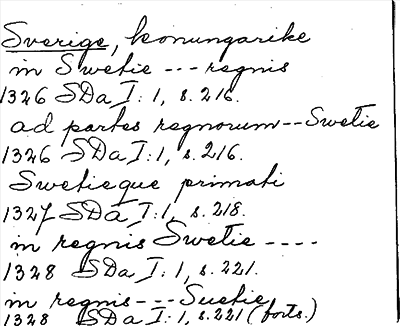 Sverige, konungarike
in Swetie --- regnis
1326 SDa I: 1, s. 216.
ad partes regnorum -- Swetie
1326 SDa I: 1, s. 216.
Swetieque primati
1327 SDa I: 1, s. 218.
in regnis Swetie ----
1328 SDa I: 1, s. 221.
in regnis --- Suetie
1328 SDa I: 1, s. 221 (forts.)